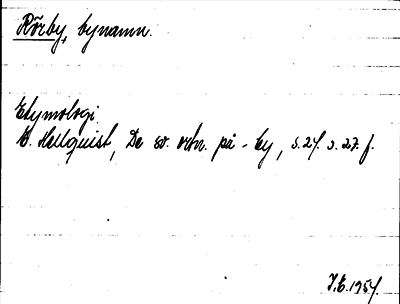 Rörby, bynamn.
Etymologi
E. Hellquist, De sv. ortn. på -by, s. 24. o. 27. f.
J.E. 1954.